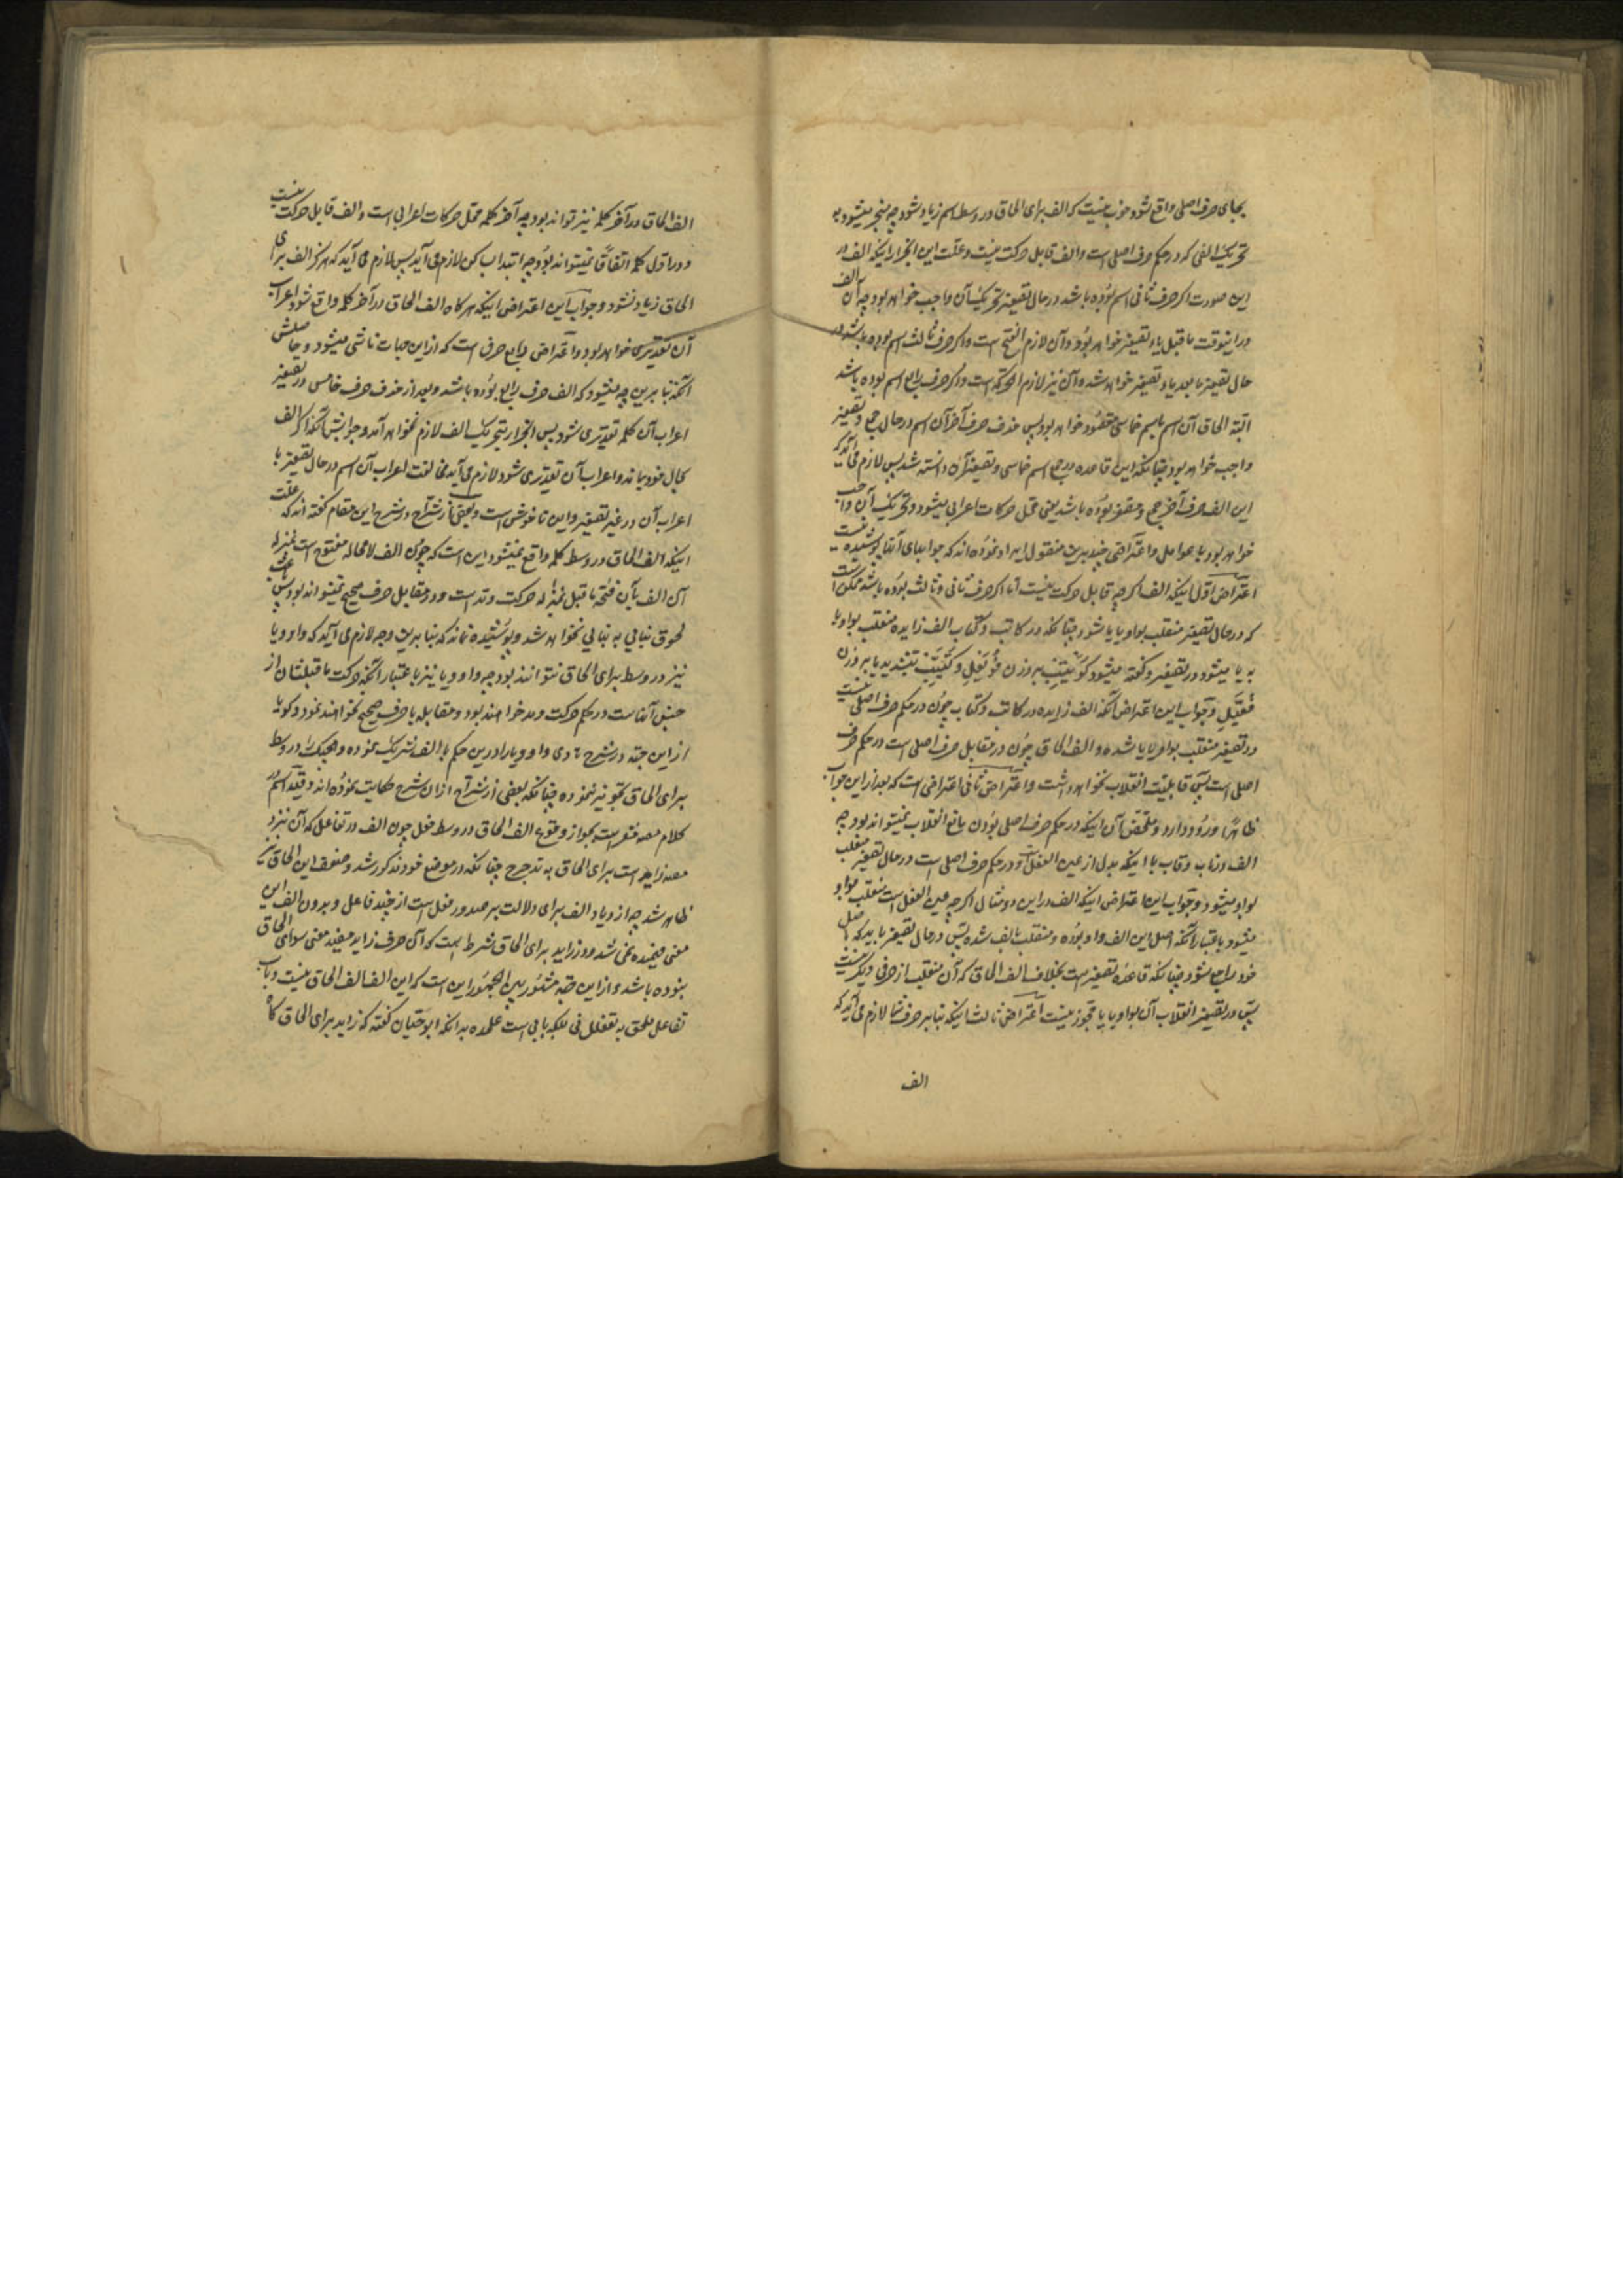 بجای حرف اصلی واقع شود خوب نیست که الف برای الحاق در وسط اسم زیاد شود چه منجر میشود به
تحریک الفی که در حکم حرف اصلی است و الف قابل حرکت نیست و علت این انجرار اینکه الف در
این صورت اکر حرف ثانی اسم بوده باشد در حال تصغیر تحریک آن واجب خواهد بود چه آن الف
در اینوقت ماقبل یاء تصغیر خواهد بود و آن لازم الفتح است و اکر حرف ثالث اسم بوده باشد در
حال تصغیر مابعد یاء تصغیر خواهد شد و آن نیز لازم الحرکة است و اکر حرف رابع اسم بوده باشد
البته الحاق آن اسم باسم خماسی مقصود خواهد بود پس حذف حرف آخر آن اسم در حال جمع و تصغیر
واجب خواهد بود چنانکه این قاعده در جمع اسم خماسی و تصغیر آن دانسته شد پس لازم می آید که
این الف حرف آخر جمع و مصغر بوده باشد یعنی محل حرکات اعرابی میشود و تحریک آن واجب
خواهد بود بعوامل و اعتراضی چند برین منقول ایراد نموده اند که جوابهای آنها پوشیده نیست
اعتراض اول اینکه الف اکرچه قابل حرکت نیست اما اکر حرف ثانی و ثالث بوده باشد ممکن است
که در حال تصغیر منقلب بواو یا یا شود چنانکه در کاتب و کتاب الف زایده منقلب بواو یا
به یا میشود در تصغیر و کفته میشود کویتب بر وزن فویعل و کتیب بتشدید یا بر وزن
فعیل و جواب این اعتراض آنکه الف زایده در کاتب و کتاب چون در حکم حرف اصلی نیست
در تصغیر منقلب بواو یا یا شده و الف الحاق چون در مقابل حرف اصلی است در حکم حرف
اصلی است پس قابلیت انقلاب نخواهد داشت و اعتراض ثانی اعتراضی است که بعد از این جواب
ظاهرا ورود دارد و ملخص آن اینکه در حکم حرف اصلی بودن مانع انقلاب نمیتواند بود چه
الف در ناب و باب با اینکه بدل از عین الفعل و در حکم حرف اصلی است در حال تصغیر منقلب
بواو میشود و جواب این اعتراض اینکه الف در این دو مثال اکرچه عین الفعل است منقلب بواو
میشود باعتبار آنکه اصل این الف واو بوده و منقلب بالف شده پس در حال تصغیر باید که باصل
خود راجع شود چنانکه قاعده تصغیر است بخلاف الف الحاق که آن منقلب از حرفی دیکر نیست
پس در تصغیر انقلاب آن بواو یا یا مجوز نیست اعتراض ثالث اینکه بنابر حرف شما لازم می آید که
الف
الف الحاق در آخر کلمه نیز نتواند بود چه آخر کلمه محل حرکات اعرابی است و الف قابل حرکت نیست
و در اول کلمه اتفاقا نمیتواند بود چه ابتدا بساکن لازم می آید پس لازم می آید که هرکز الف برای
الحاق زیاد نشود و جواب این اعتراض اینکه هرکاه الف الحاق در آخر کلمه واقع شود اعراب
آن تقدیری خواهد بود و اعتراض رابع حرفی است که از این جواب ناشی میشود و حاصلش
آنکه بنابرین چه میشود که الف حرف رابع بوده باشد و بعد از حذف حرف خامس در تصغیر
اعراب آن کلمه تقدیری شود پس انجرار بتحریک الف لازم نخواهد آمد و جوابش آنکه اکر الف
بحال خود بماند و اعراب آن تقدیری شود لازم می آید مخالفت اعراب آن اسم در حال تصغیر با
اعراب آن در غیر تصغیر و این ناخوش است و بعضی از شراح در شرح این مقام کفته اند که علت
اینکه الف الحاق در وسط کلمه واقع نمیشود این است که چون الف لامحاله مفتوح است بمنزله
آن الف بآن فتحه ماقبل بمنزله حرکت و مد است و در مقابل حرف صحیح نمیتواند بود پس باعث
لحوق بنایی به بنایی نخواهد شد و پوشیده نماند که بنا برین وجه لازم می آید که واو و یا
نیز در وسط برای الحاق نتوانند بود چه واو و یا نیز باعتبار آنکه حرکت ماقبلشان از
جنس آنهاست در حکم حرکت و مد خواهند بود و مقابله با حرف صحیح نخواهند نمود و کویا
از این جهة در شرح هادی واو و یا را درین حکم با الف شریک نموده و هیچیک را در وسط
برای الحاق تجویز ننموده چنانکه بعضی از شراح از ان شرح حکایت نموده اند و
کلام مصه مشعر است بجواز وقوع الف الحاق در وسط فعل چون الف در تفاعل که آن نزد
مصه زاید است برای الحاق به تدحرج چنانکه در موضع خود مذکور شد و ضعف این الحاق نیز
ظاهر شد چه ازدیاد الف برای دلالت بر صدور فعل است از چند فاعل و بدون الف این
معنی فهمیده نمی شد و در زاید برای الحاق شرط است که آن حرف زاید مفید معنی سوای الحاق
نبوده باشد و از این جهة مشهور بین الجمهور این است که این الف الف الحاق نیست و باب
تفاعل ملحق به تفعلل نی بلکه بابی است علیحده بدانکه ابوحیان کفته که زاید برای الحاق کاه